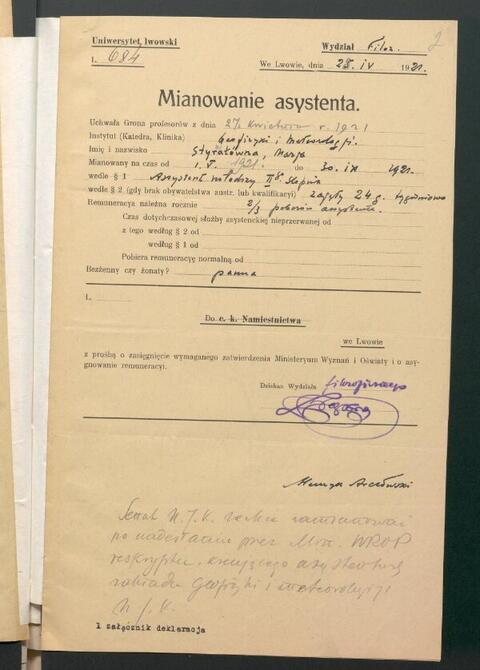 Uniwersytet lwowski
Wydział Filoz.
2
L. 684
We Lwowie, dnia 28. IV 1921.
Mianowanie asystenta.
Uchwała Grona profesorów z dnia 27 kwietnia r. 1921
Instytut (Katedra, Klinika) Geofizyki i Meteorologji.
Imię i nazwisko Styrałówna, Marja
Mianowany na czas od 1. V. 1921. do 30. IX 1921.
według § 1 Asystent młodszy II go stopnia
według § 2 (gdy brak obywatelstwa austr. lub kwalifikacyi) zajęty 24 g. tygodniowo
Remuneracya należna rocznie 2/3 poborów asystenta.
Czas dotychczasowej służby asystenckiej nieprzerwanej od
z tego według § 2 od
według § 1 od
Pobiera remuneracyę normalną od
Bezżenny czy żonaty? panna
L.
Do c. k. Namiestnictwa
we Lwowie
z prośbą o zasięgnięcie wymaganego zatwierdzenia Ministeryum Wyznań i Oświaty i o asy-
gnowanie remuneracyi.
Dziekan Wydziału filozoficznego
Henryk Arctowski
Senat U. J. K. zechce zamianować
po nadesłaniu przez Min. WROP
reskryptu, kreującego asystenturę
zakładu geofizyki i meteorologji
U. J. K.
1 załącznik deklaracja